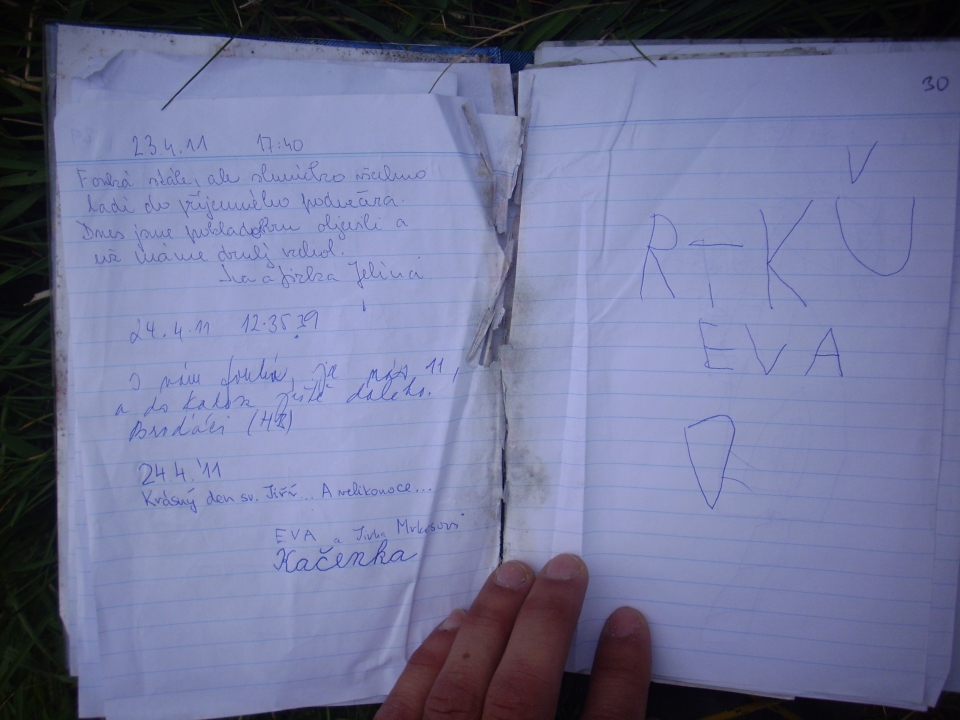 23.4.11 17:40
Fouká stále, ale sluníčko všechno
ladí do příjemného podvečera.
Dnes jsme pohladobku objevili a
už máme druhý vrchol.
a Jirka Jelínci
24.4.11 12.35.39
I nám fouká, je nás 11,
a do Kadaně ještě daleko.
Brďáci (HB)
24.4.'11
Krásný den sv. Jiří... A velikonoce...
EVA a Jirka
Kačenka
30
EVA